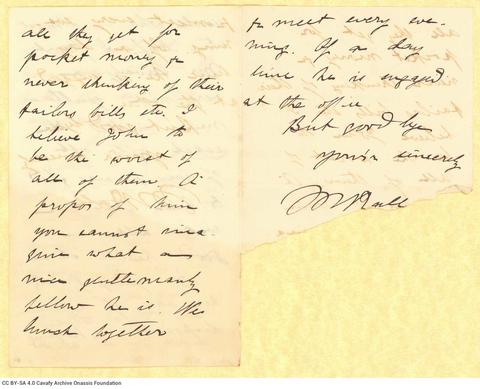 all they get for
pocket money &
never thinking of their
tailors bills etc. I
believe John to
be the worst of
all of them. A
propos of him
you cannot ima-
gine what a
nice gentlemanly
fellow he is. We
lunch together
& meet every eve-
ning. Of a day
time he is engaged
at the office
But goodbye
yours sincerely
Ralli
CC BY-SA 4.0 Cavafy Archive Onassis Foundation